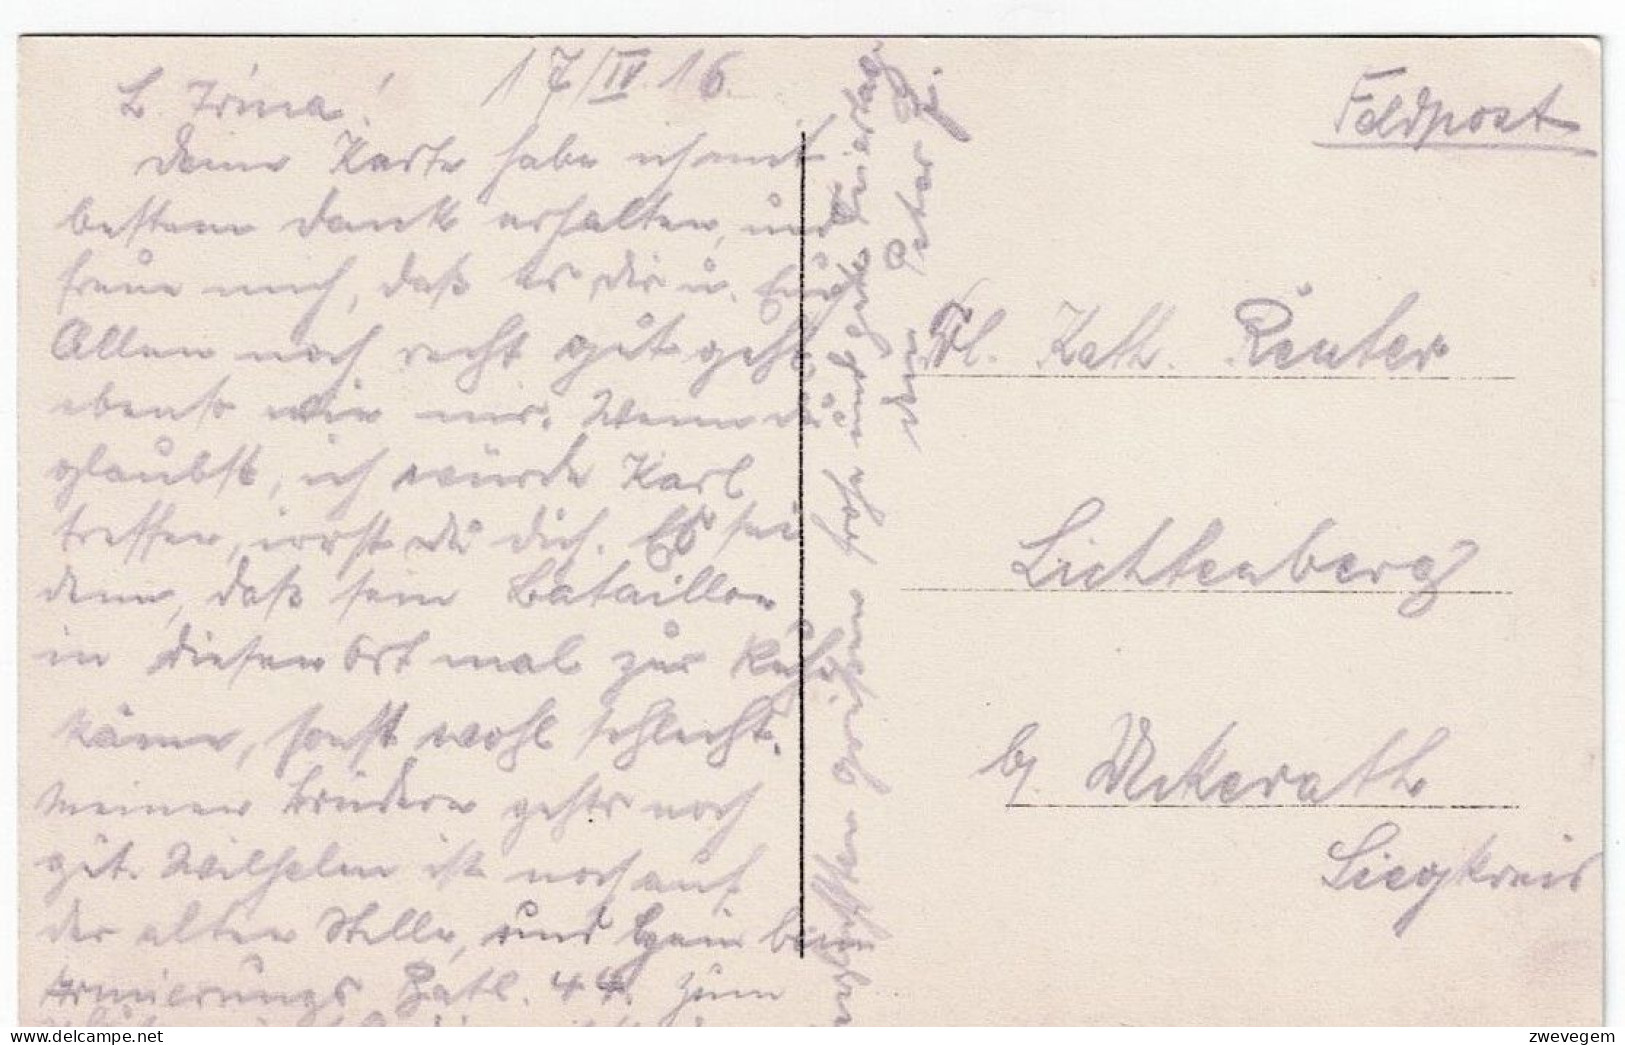 17/IV.16.
L. Trina!
Deine Karte habe ich mit
bestem Dank erhalten, und
freue mich, daß es Dir u. Euch
Allen noch recht gut geht,
ebenso wie mir. Wenn Du
glaubst, ich würde Karl
treffen, irrst Du Dich. Es sei
denn, daß sein Bataillon
in diesen Ort mal zur Ruhe
käme, sonst wohl schlecht.
Meinen Brüdern gehts noch
gut. Wilhelm ist noch auf
der alten Stelle, und beim
Armierungs Batl. 44. Zum
frohe und gute Feiertage
Peter
Feldpost
Frl. Kath. Reuter
Lichtenberg
b/ Uckerath
Siegkreis
delcampe.net
zwevegem